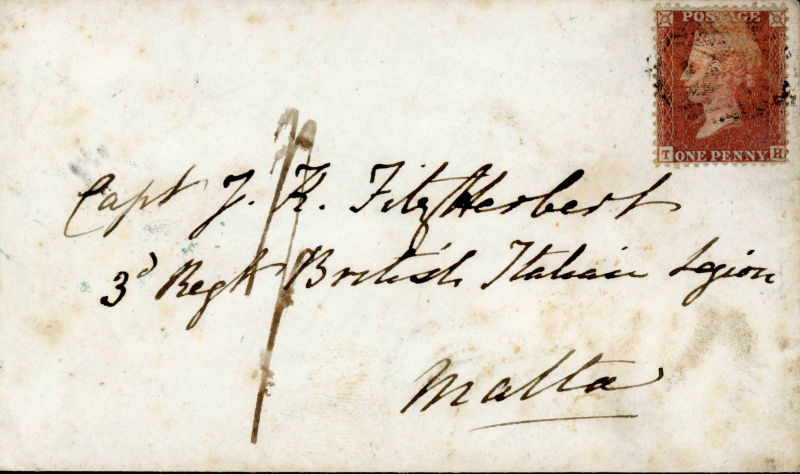 POSTAGE
T ONE PENNY H
Capt J. K. FitzHerbert
3d Regt British Italian Legion
Malta